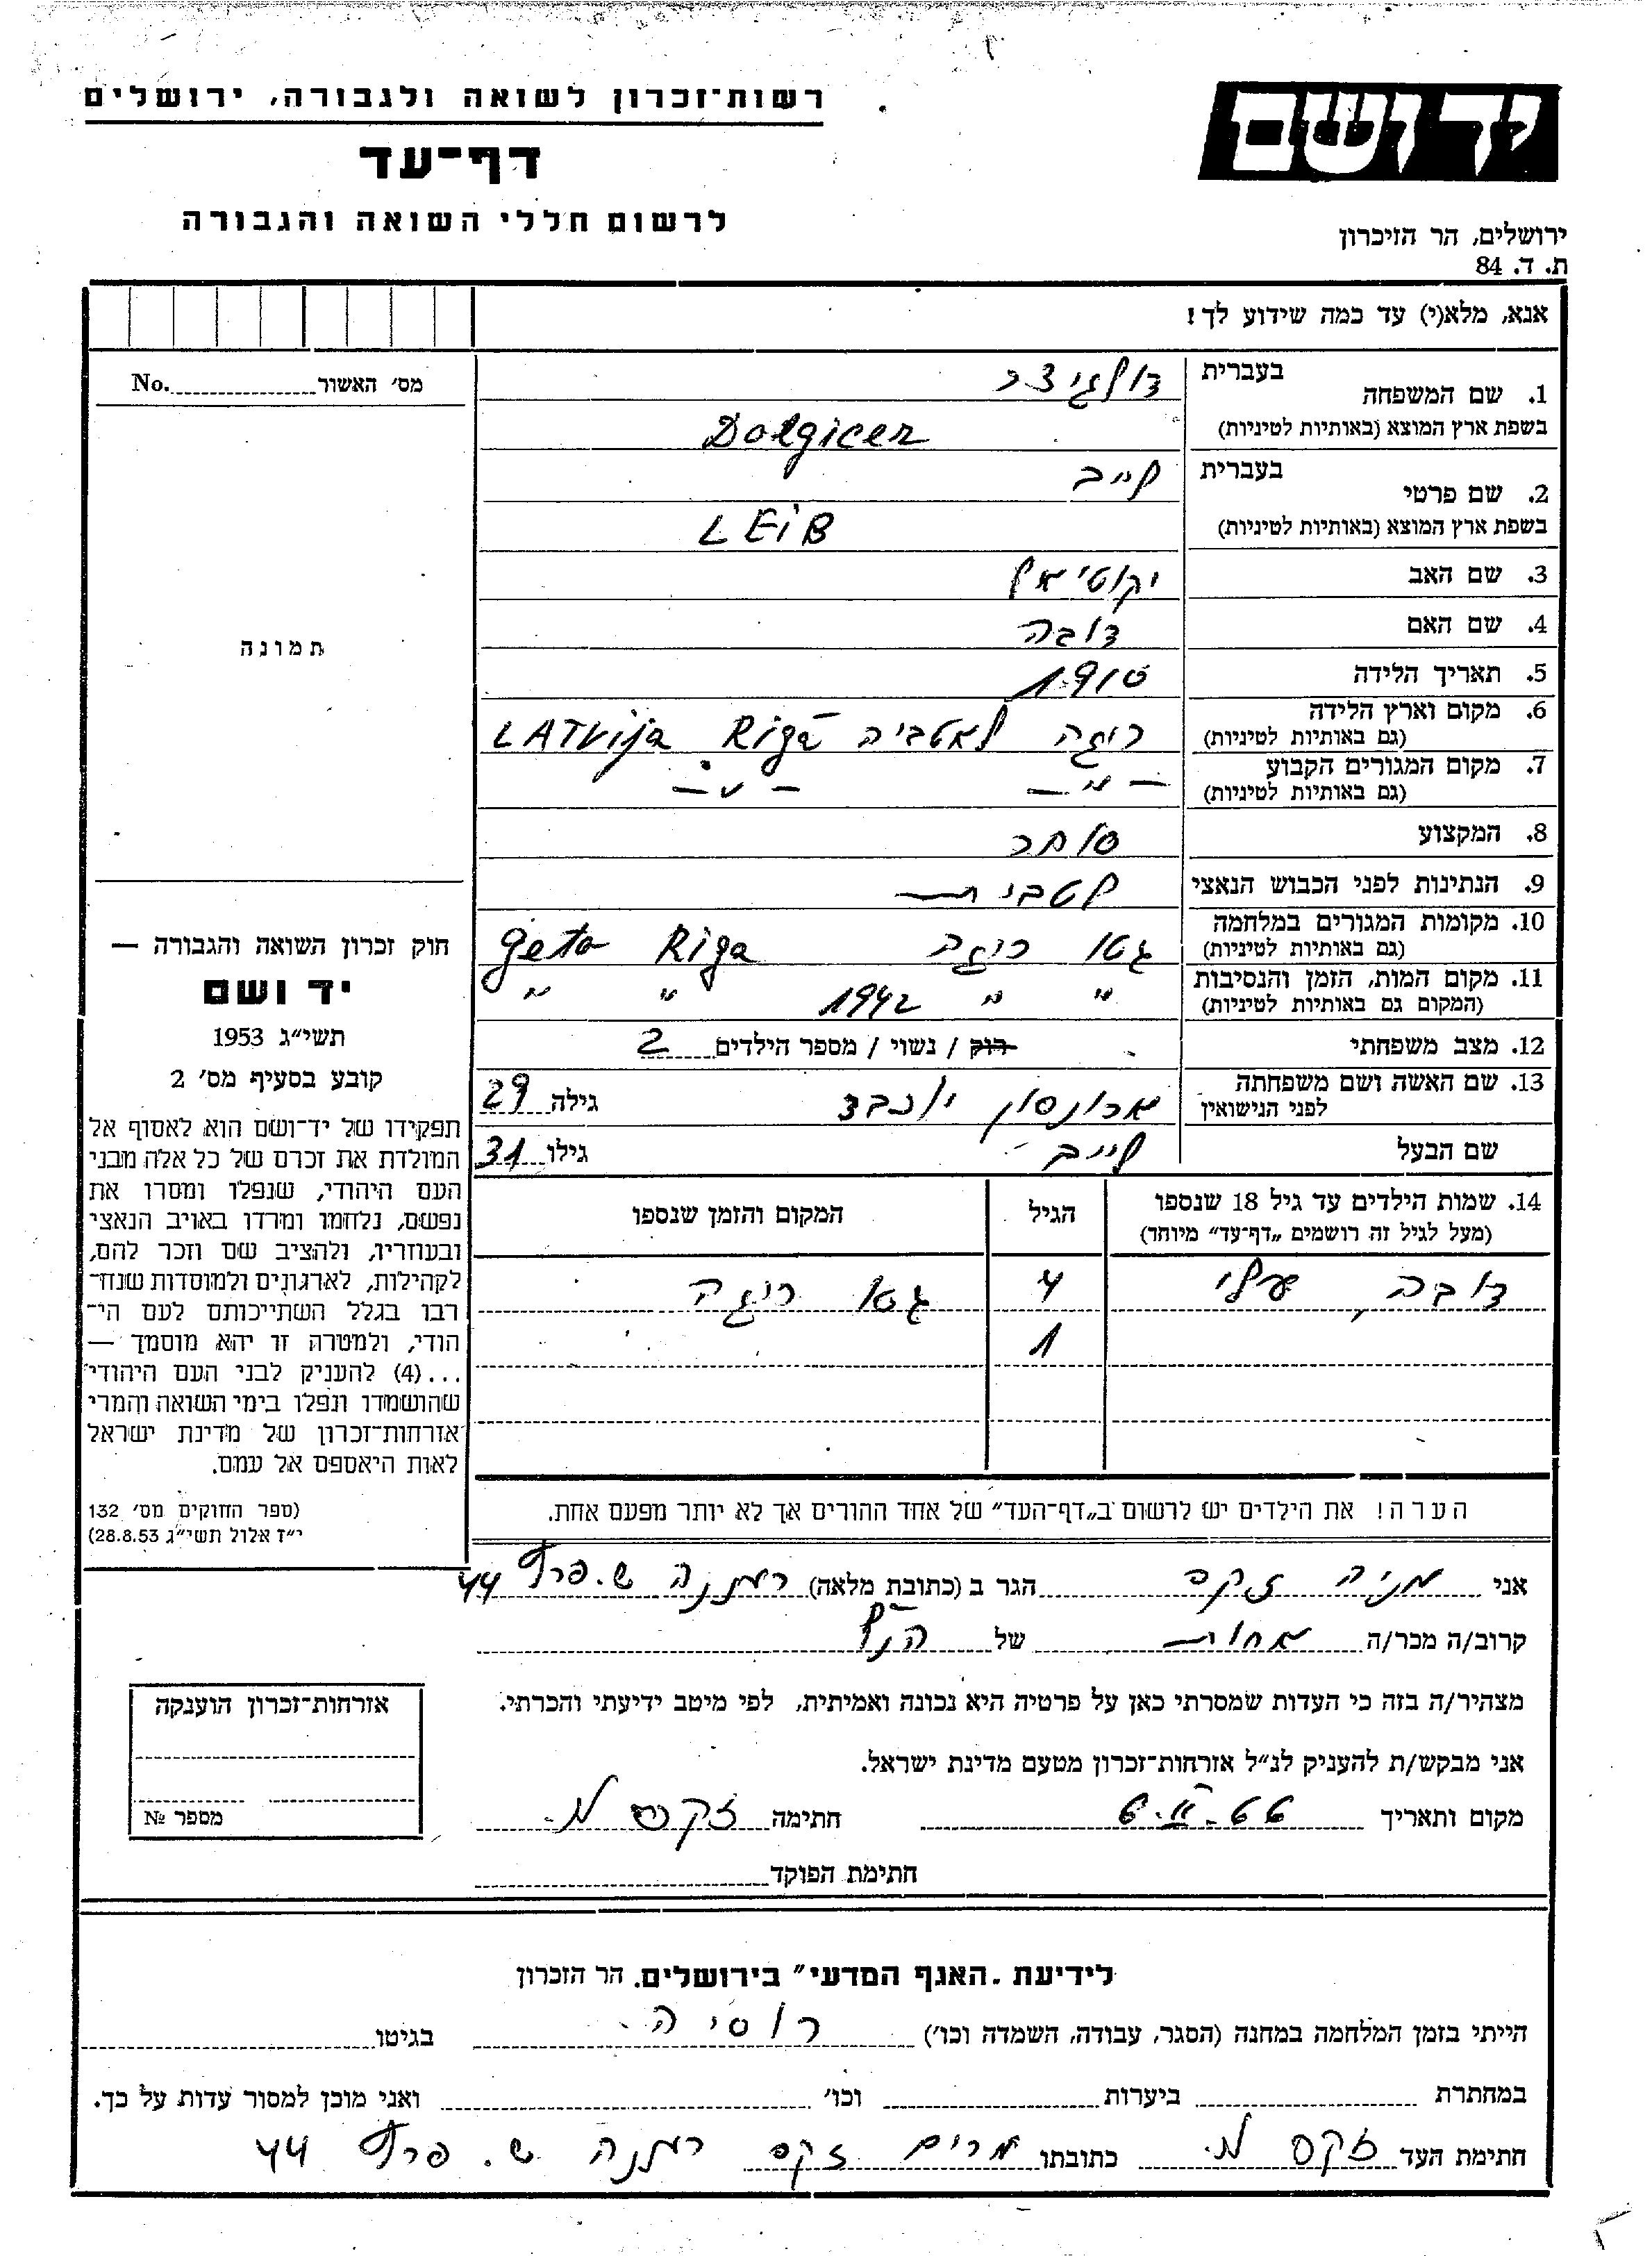 רשות־זכרון לשואה ולגבורה, ירושלים
דף־עד
לרשום חללי השואה והגבורה
יד ושם
ירושלים, הר הזיכרון
ת. ד. 84
אנא, מלא(י) עד כמה שידוע לך!
מס׳ האשור No.
תמונה
1. שם המשפחה בעברית דולגיצר
בשפת ארץ המוצא (באותיות לטיניות) Dolgicer
2. שם פרטי בעברית לייב
בשפת ארץ המוצא (באותיות לטיניות) LEiB
3. שם האב יקותיאל
4. שם האם דובה
5. תאריך הלידה 1910
6. מקום וארץ הלידה (גם באותיות לטיניות) ריגה לאטביה Rigā LATvija
7. מקום המגורים הקבוע (גם באותיות לטיניות) — ״ — — ״ —
8. המקצוע סוחר
9. הנתינות לפני הכבוש הנאצי לטבית
10. מקומות המגורים במלחמה (גם באותיות לטיניות) גטו ריגה Riga geto
11. מקום המות, הזמן והנסיבות (המקום גם באותיות לטיניות) ״ ״ 1942 ״ ״
12. מצב משפחתי רוק / נשוי / מספר הילדים 2
13. שם האשה ושם משפחתה לפני הנישואין ארונסון יוכבד גילה 29
שם הבעל לייב גילו 31
14. שמות הילדים עד גיל 18 שנספו הגיל המקום והזמן שנספו
(מעל לגיל זה רושמים „דף־עד״ מיוחד)
דובה, 4 גטו ריגה
1
הערה! את הילדים יש לרשום ב„דף־העד״ של אחד ההורים אך לא יותר מפעם אחת.
חוק זכרון השואה והגבורה —
יד ושם
תשי״ג 1953
קובע בסעיף מס׳ 2
תפקידו של יד־ושם הוא לאסוף אל
המולדת את זכרם של כל אלה מבני
העם היהודי, שנפלו ומסרו את
נפשם, נלחמו ומרדו באויב הנאצי
ובעוזריו, ולהציב שם וזכר להם,
לקהילות, לארגונים ולמוסדות שנח־
רבו בגלל השתייכותם לעם הי־
הודי, ולמטרה זו יהא מוסמך —
...(4) להעניק לבני העם היהודי
שהושמדו ונפלו בימי השואה והמרי
אזרחות־זכרון של מדינת ישראל
לאות היאספם אל עמם.
(ספר החוקים מס׳ 132
י״ז אלול תשי״ג 28.8.53)
אני מניה זקס הגר ב (כתובת מלאה) רעננה ש. פרץ 44
קרוב/ה מכר/ה אחות של הנ״ל
מצהיר/ה בזה כי העדות שמסרתי כאן על פרטיה היא נכונה ואמיתית, לפי מיטב ידיעתי והכרתי.
אני מבקש/ת להעניק לנ״ל אזרחות־זכרון מטעם מדינת ישראל.
מקום ותאריך חתימה זקס מ.
חתימת הפוקד
אזרחות־זכרון הוענקה
מספר №
לידיעת „האגף המדעי״ בירושלים. הר הזכרון
הייתי בזמן המלחמה במחנה (הסגר, עבודה, השמדה וכו׳) רוסיה בגיטו
במחתרת ביערות וכו׳ ואני מוכן למסור עדות על כך.
חתימת העד זקס מ. כתובתו מרים זקס רעננה ש. פרץ 44